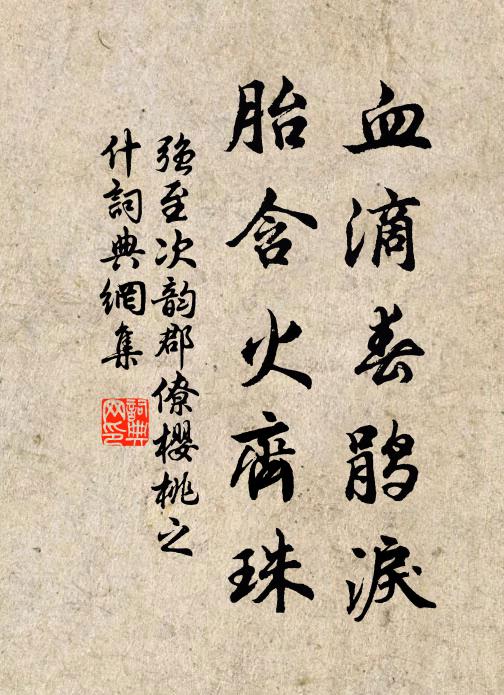 血滴春鹃淚
胎含火齊珠
強至次韵郡僚櫻桃之
什詞典網集
詞典
网印